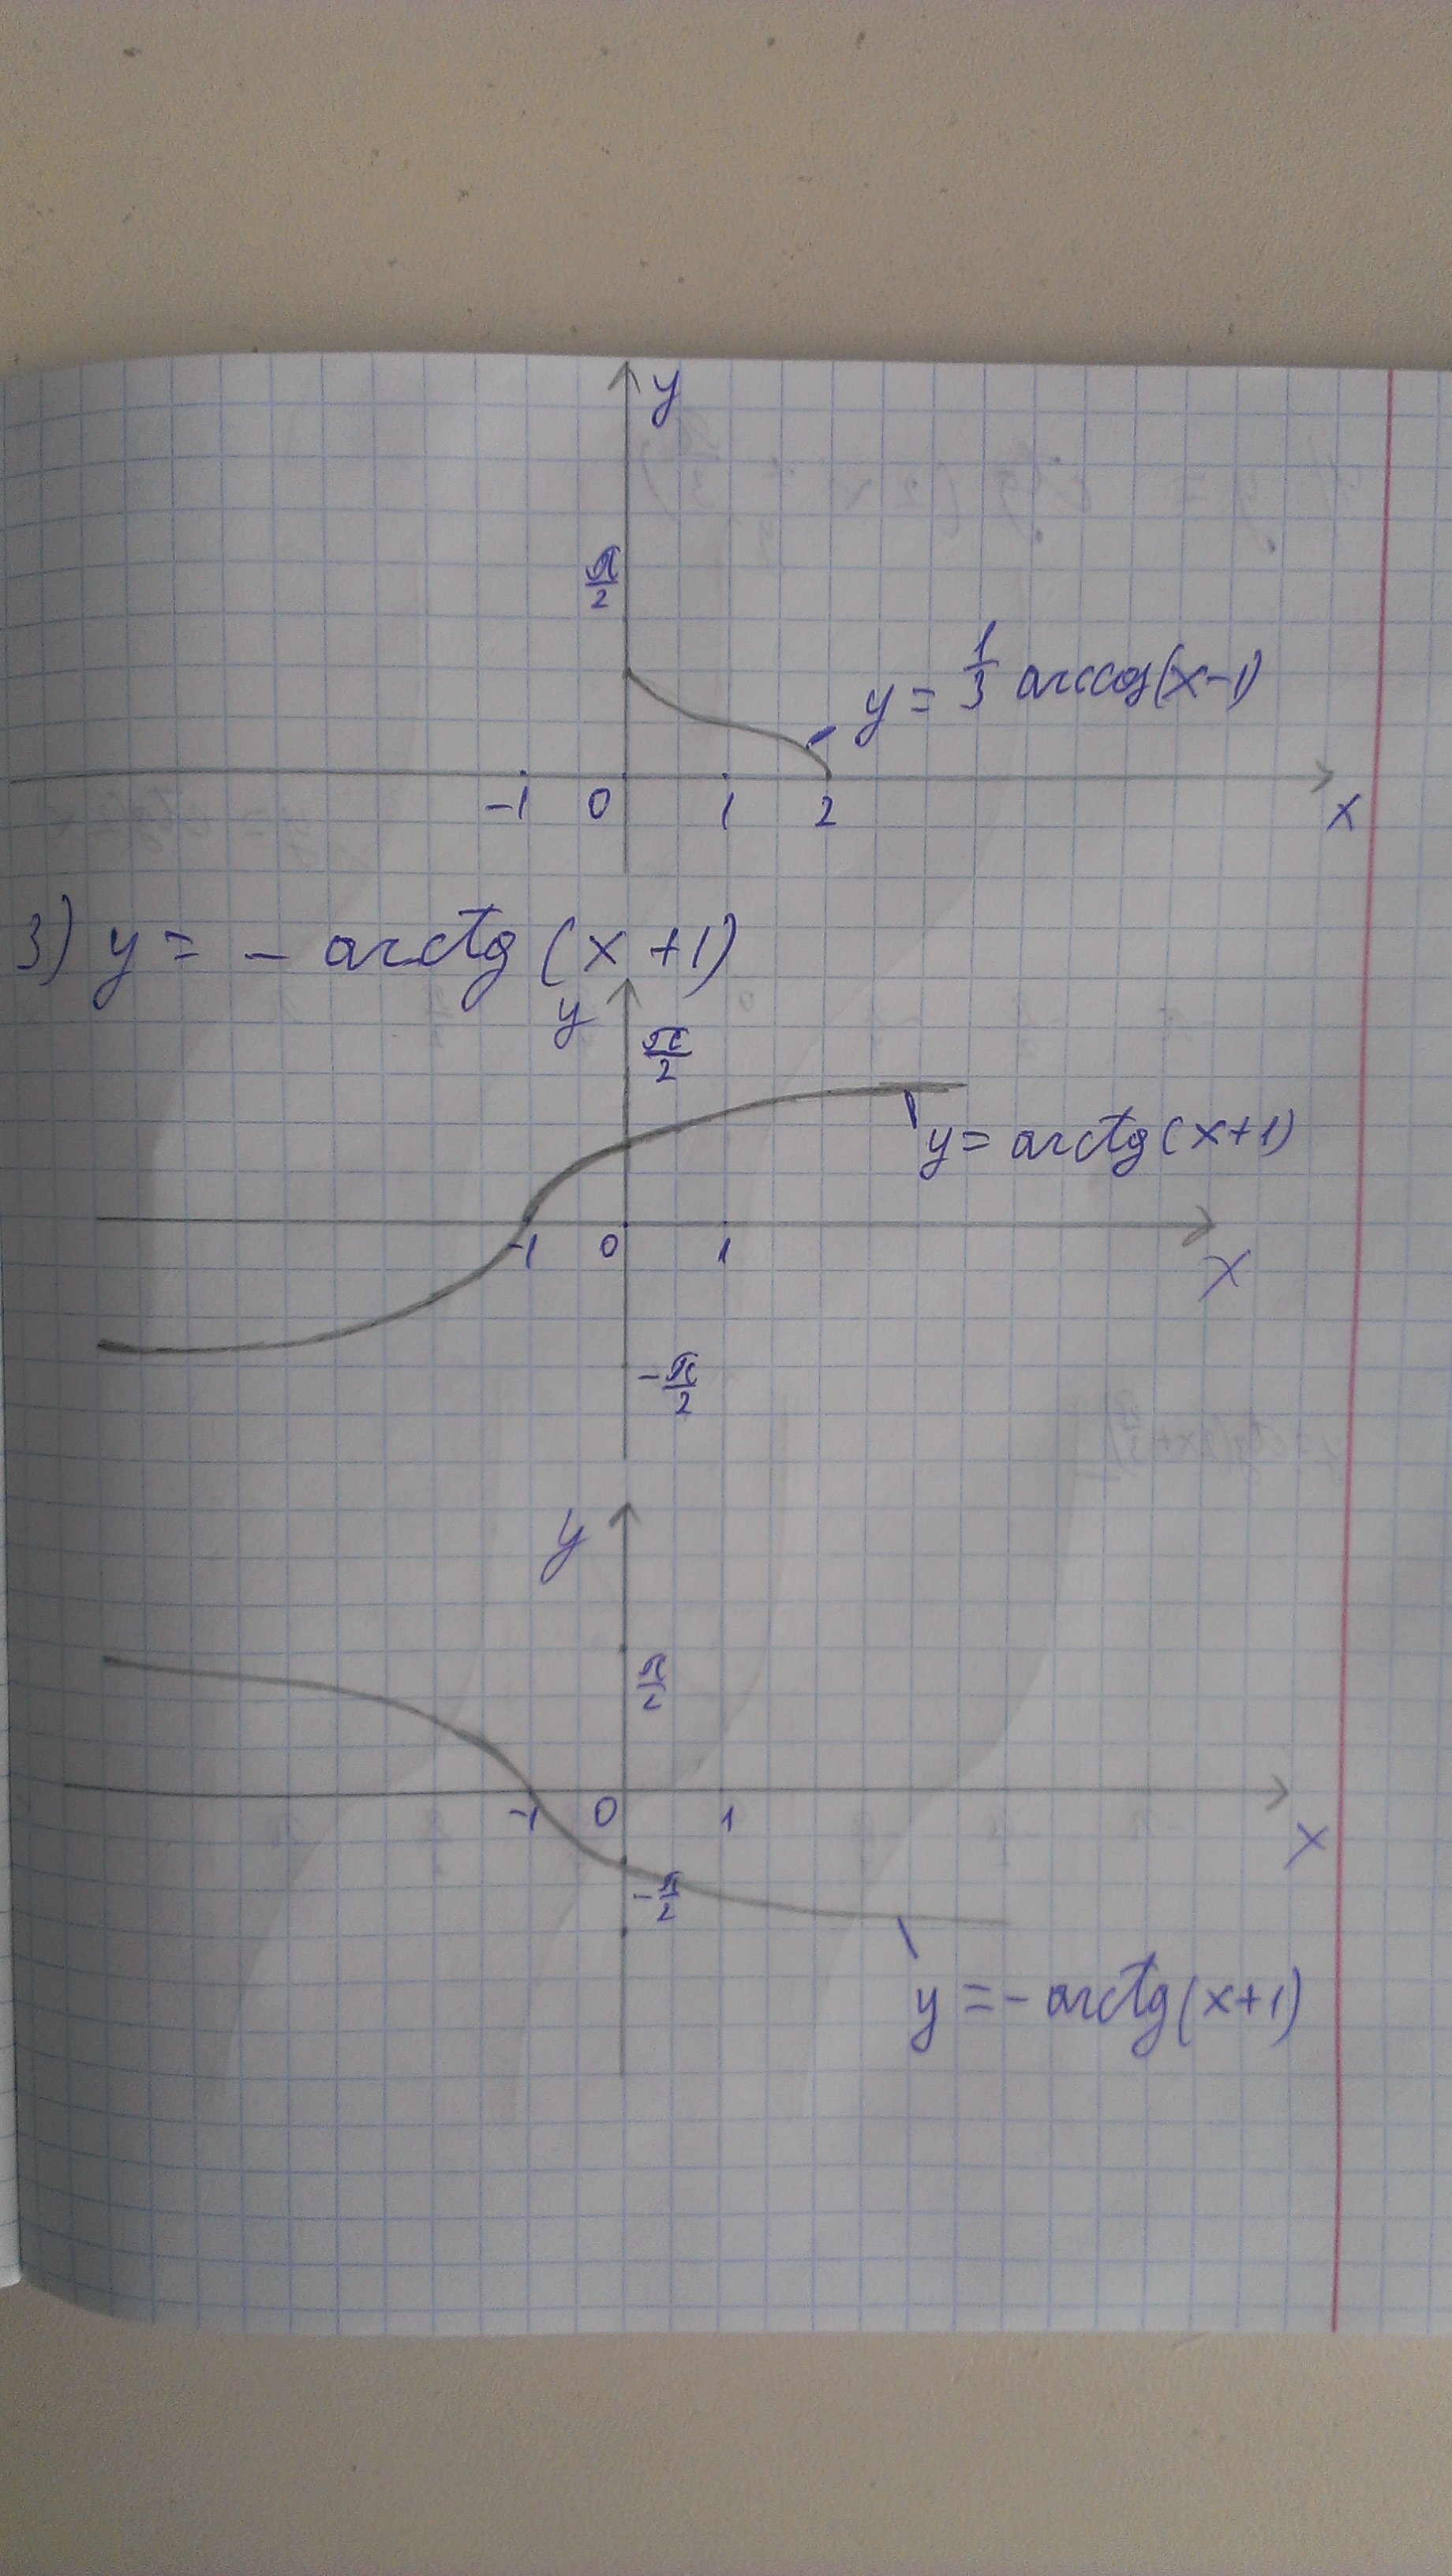 y
π/2
y = 1/3 arccos(x-1)
-1 0 1 2 x
3) y = - arctg (x+1)
y
π/2
y = arctg(x+1)
-1 0 1
x
-π/2
y
π/2
-1 0 1
x
-π/2
y = - arctg(x+1)